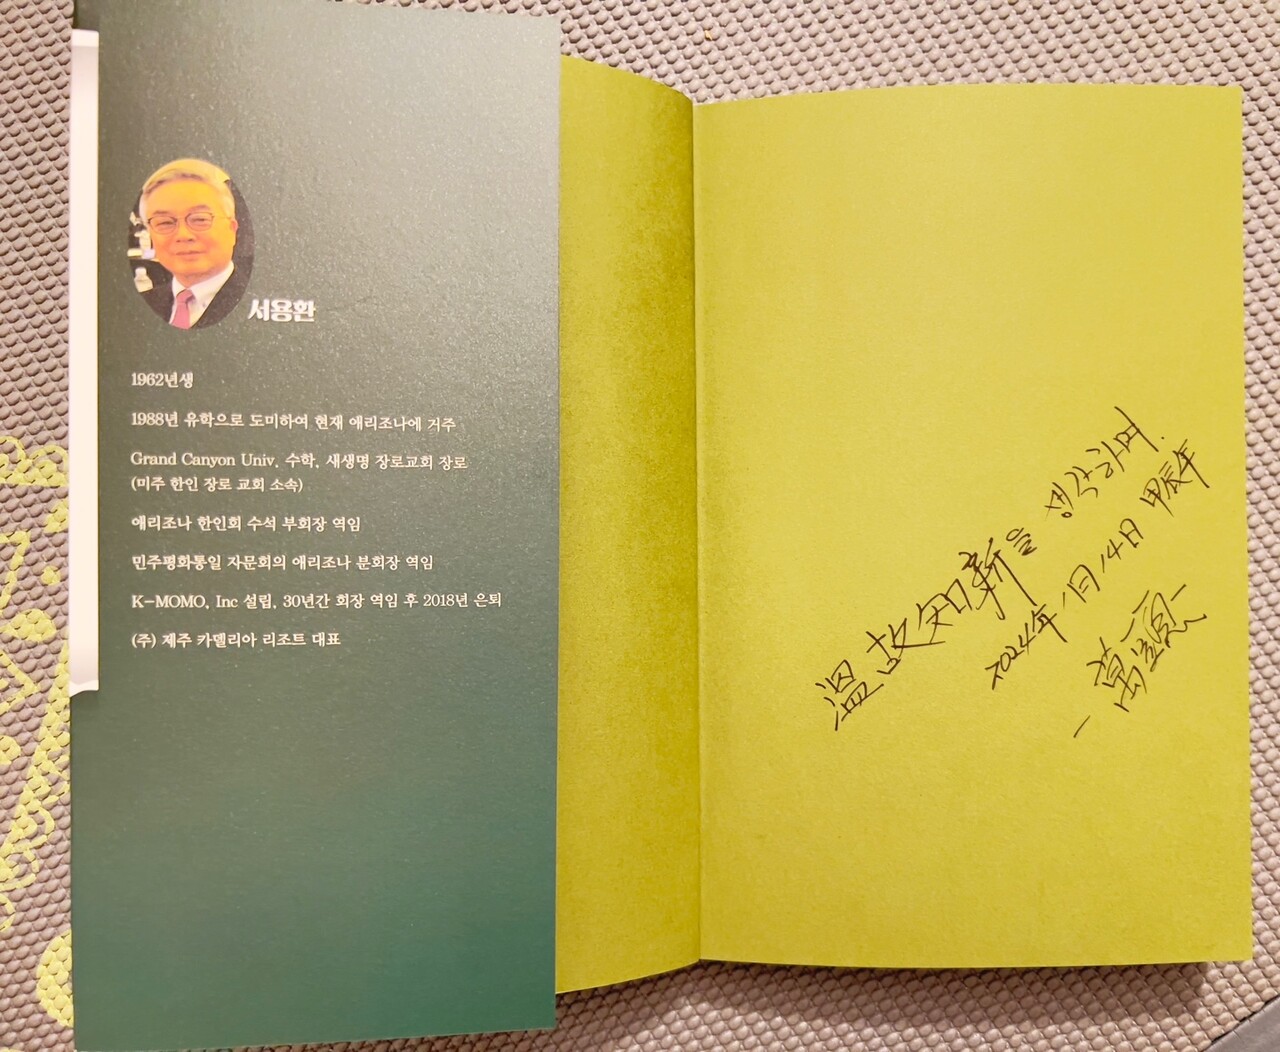 서용환
1962년생
1988년 유학으로 도미하여 현재 애리조나에 거주
Grand Canyon Univ. 수학, 새생명 장로교회 장로
(미주 한인 장로 교회 소속)
애리조나 한인회 수석 부회장 역임
민주평화통일 자문회의 애리조나 분회장 역임
K-MOMO, Inc 설립, 30년간 회장 역임 후 2018년 은퇴
(주) 제주 카멜리아 리조트 대표
溫故知新을 생각하며.
2024年 1月 14日 甲辰年